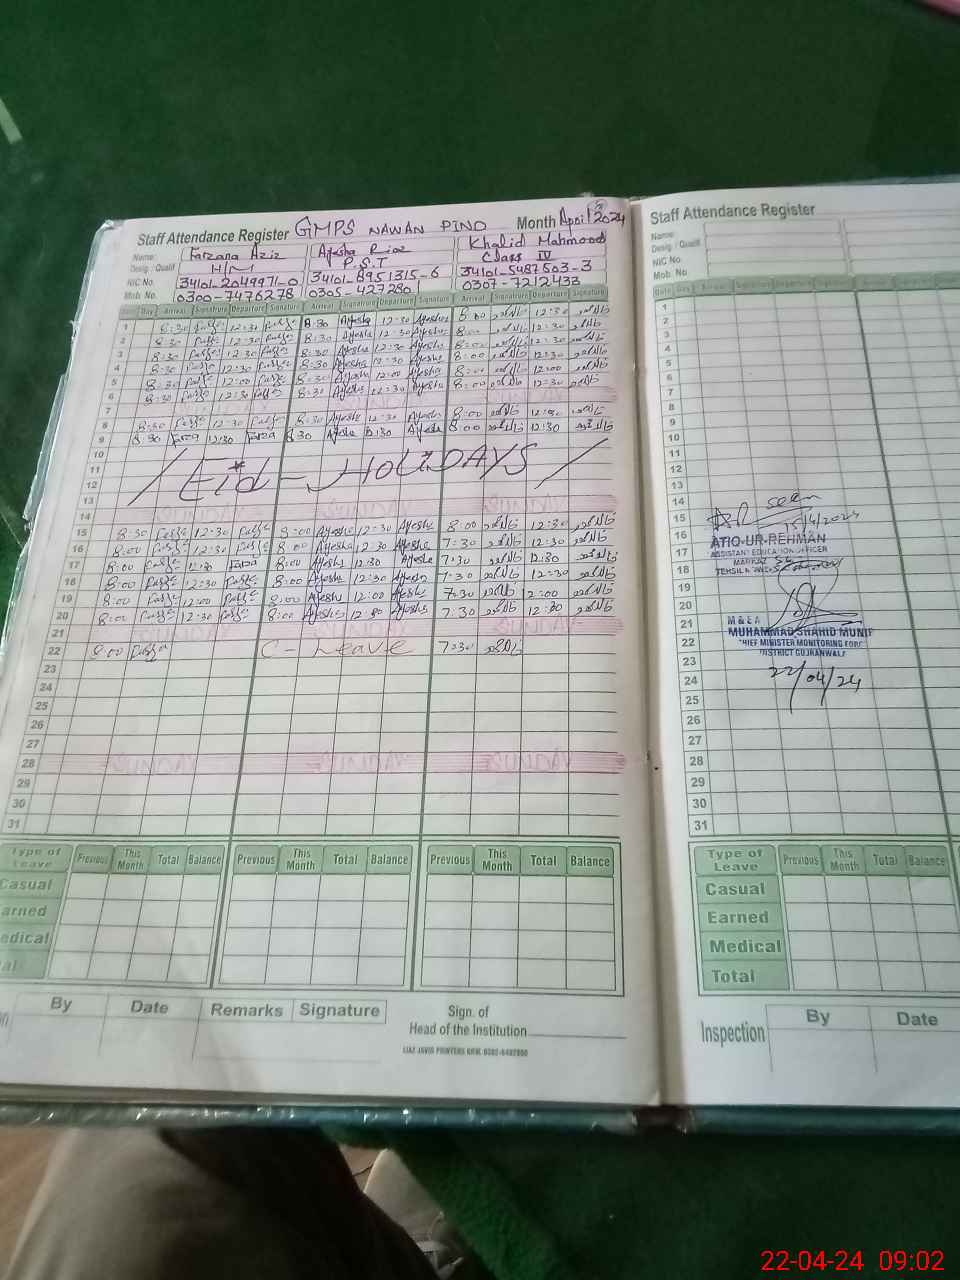 Staff Attendance Register GMPS NAWAN PIND Month April 2024
Name: Farzana Aziz Ayesha Riaz Khalid Mahmood
Desig. / Qualif P.S.T Class IV
NIC No. 34101-2049971-0 34101-8951315-6 34101-5487503-3
Mob. No. 0300-7476278 0305-4272801 0307-7212433
Day Arrival Signature Departure Signature Arrival Signature Departure Signature Arrival Signature Departure Signature
1 8:30 12:30 8:30 Ayesha 12:30 Ayesha 8:00 خالد محمود 12:30 خالد محمود
2 8:30 12:30 8:30 Ayesha 12:30 Ayesha 8:00 خالد محمود 12:30 خالد محمود
3 8:30 12:30 8:30 Ayesha 12:30 Ayesha 8:00 خالد محمود 12:30 خالد محمود
4 8:30 12:30 8:30 Ayesha 12:30 Ayesha 8:00 خالد محمود 12:30 خالد محمود
5 8:30 12:00 8:30 Ayesha 12:00 Ayesha 8:00 خالد محمود 12:00 خالد محمود
6 8:30 12:30 8:30 Ayesha 12:30 Ayesha 8:00 خالد محمود 12:30 خالد محمود
7
8 8:30 12:30 8:30 Ayesha 12:30 Ayesha 8:00 خالد محمود 12:30 خالد محمود
9 8:30 Farza 12:30 Farza 8:30 Ayesha 12:30 Ayesha 8:00 خالد محمود 12:30 خالد محمود
10
11 Eid - HOLIDAYS
12
13
14
15 8:30 12:30 8:00 Ayesha 12:30 Ayesha 8:00 خالد محمود 12:30 خالد محمود
16 8:00 12:30 8:00 Ayesha 12:30 Ayesha 7:30 خالد محمود 12:30 خالد محمود
17 8:00 12:30 Farza 8:00 Ayesha 12:30 Ayesha 7:30 خالد محمود 12:30 خالد محمود
18 8:00 12:30 8:00 Ayesha 12:30 Ayesha 7:30 خالد محمود 12:30 خالد محمود
19 8:00 12:00 8:00 Ayesha 12:00 Ayesha 7:30 خالد محمود 12:00 خالد محمود
20 8:00 12:30 8:00 Ayesha 12:30 Ayesha 7:30 خالد محمود 12:30 خالد محمود
21
22 8:00 C - Leave 7:30 خالد محمود
23
24
25
26
27
28
29
30
31
Type of Leave Previous This Month Total Balance Previous This Month Total Balance Previous This Month Total Balance
Casual
arned
edical
By Date Remarks Signature
Sign. of
Head of the Institution
Staff Attendance Register
Name:
Desig. / Qualif
NIC No.
Mob. No.
Date Day Arrival Signature Departure Signature
1
2
3
4
5
6
7
8
9
10
11
12
13
14
15
16
17
18
19
20
21
22
23
24
25
26
27
28
29
30
31
seen
15/4/2024
ATIQ-UR-REHMAN
ASSISTANT EDUCATION OFFICER
MARKAZ
M & E A
MUHAMMAD SHAHID MUNIR
CHIEF MINISTER MONITORING FORCE
DISTRICT GUJRANWALA
22/04/24
Type of Leave Previous This Month Total Balance
Casual
Earned
Medical
Total
Inspection By Date
22-04-24 09:02